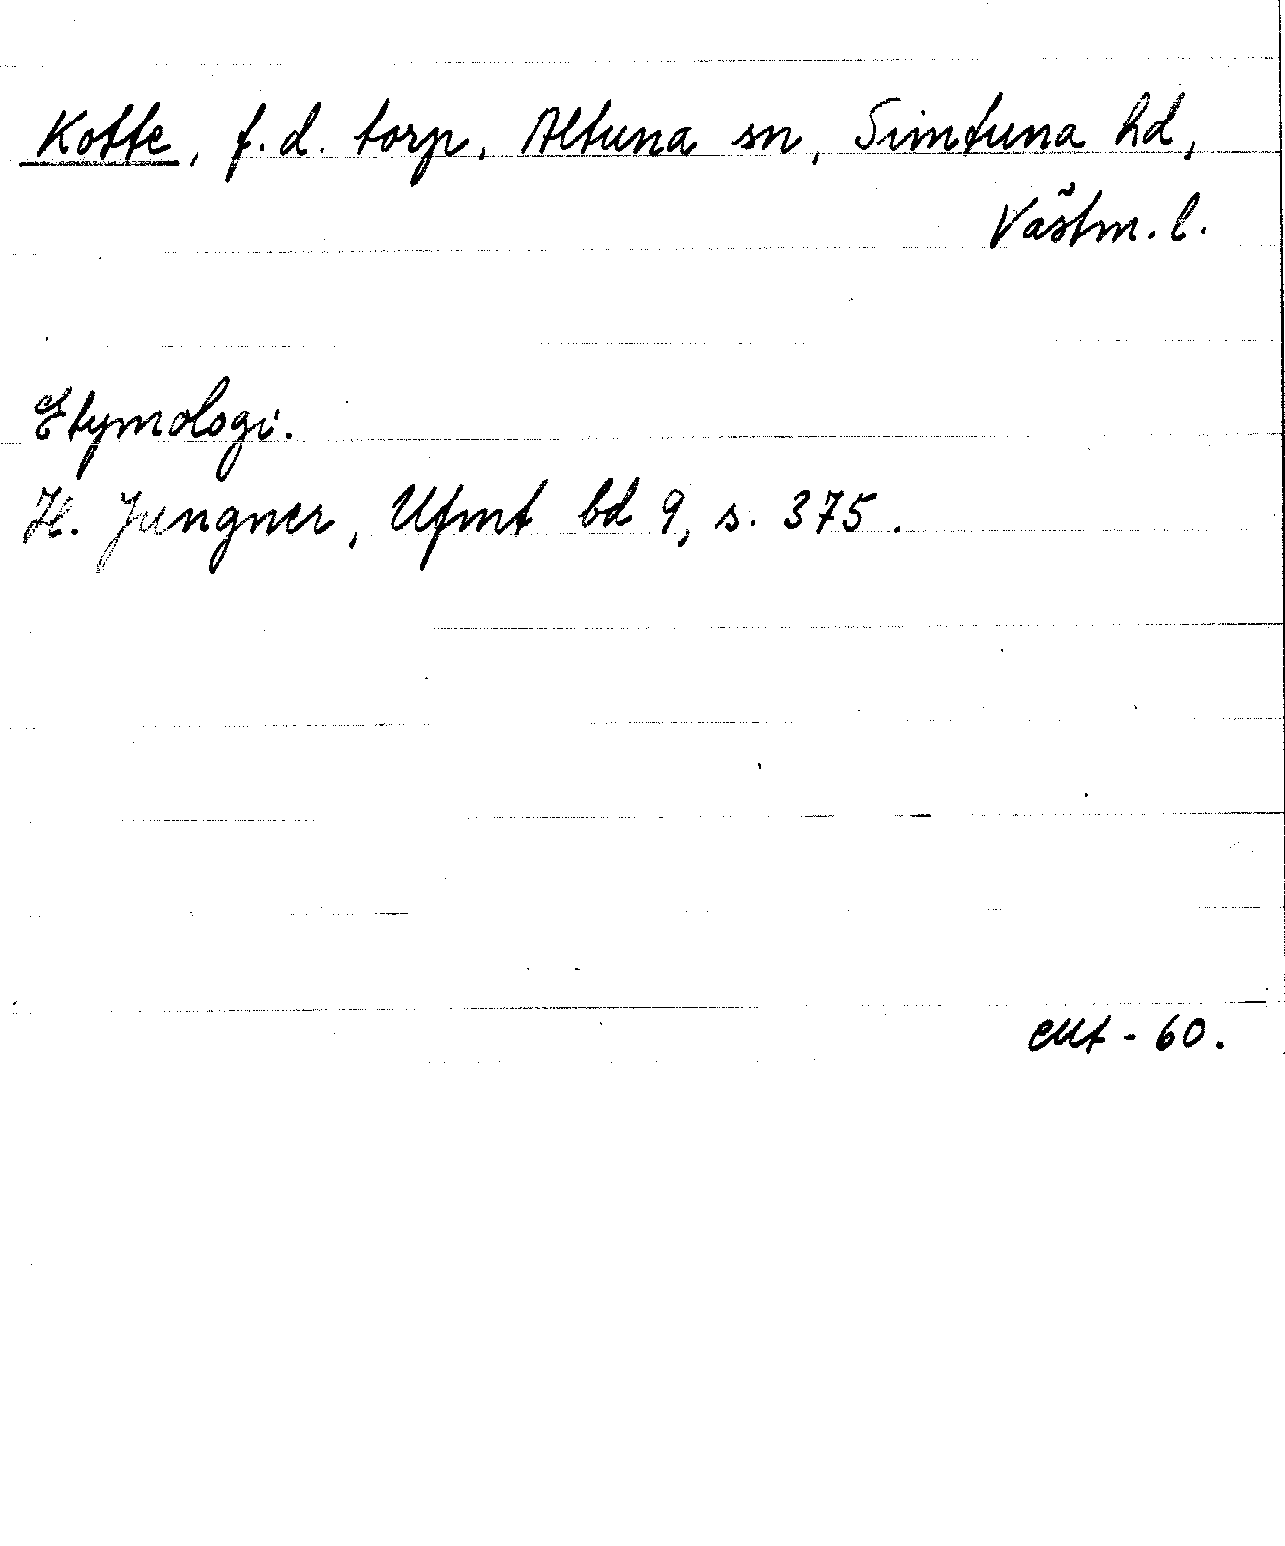 Kotte, f.d. torp, Altuna sn, Simtuna hd,
Västm. l.
Etymologi.
H. Jungner, Ufmt bd 9, s. 375.
- 60.